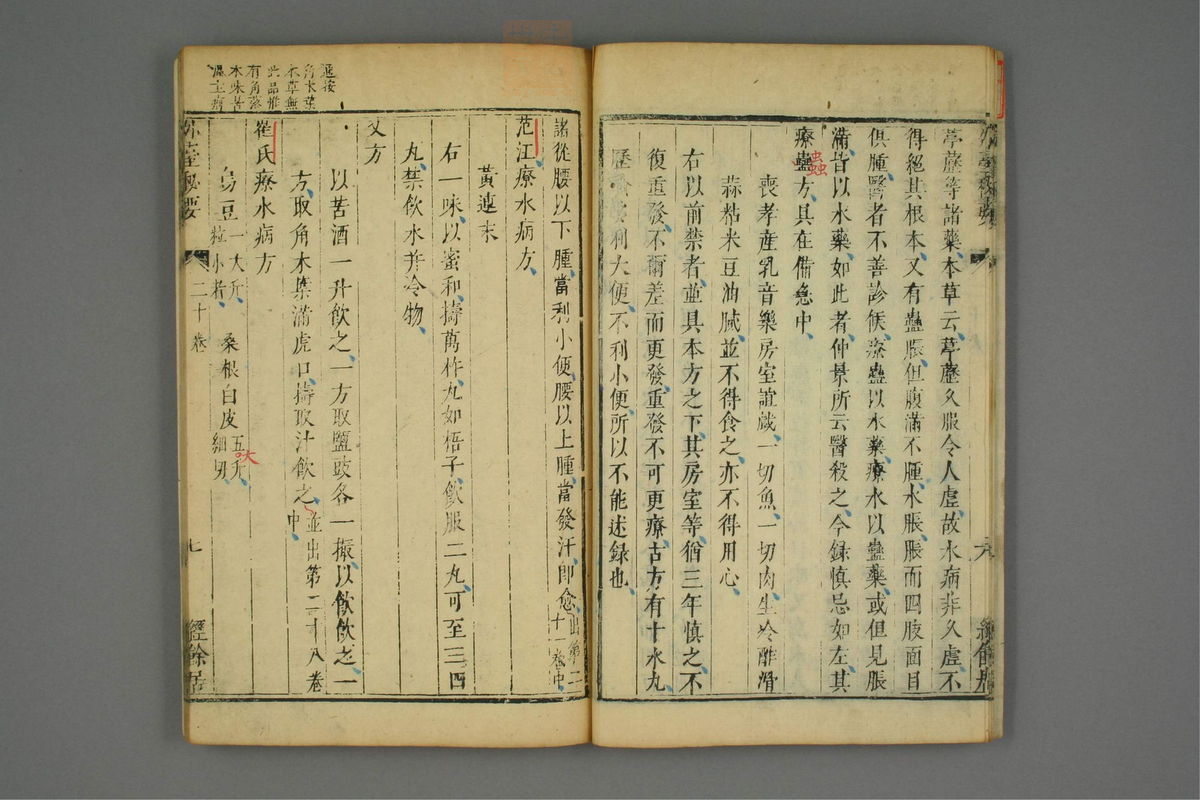 葶藶等諸藥本草云葶藶久服令人虛故水病非久虛不
得絕其根本又有蠱脹但腹滿不腫水脹脹而四肢面目
俱腫醫者不善診候療蠱以水藥療水以蠱藥或但見脹
滿皆以水藥如此者仲景所云醫殺之今録慎忌如左其
療蠱方具在備急中
蟲
喪孝產乳音樂房室諠戲一切魚一切肉生冷醋滑
蒜粘米豆油膩並不得食之亦不得用心
右以前禁者並具本方之下其房室等猶三年慎之不
復重發不爾差而更發重發不可更療古方有十水丸
歷驗多利大便不利小便所以不能述録也
六
經餘居
諸從腰以下腫當利小便腰以上腫當發汗即愈出第二
十一卷中
范汪療水病方
黃連末
右一味以蜜和擣萬杵丸如梧子飲服二丸可至三四
丸禁飲水并冷物
又方
以苦酒一升飲之一方取鹽豉各一撮以飲飲之一
方取角木葉滿虎口擣取汁飲之並出第二十八卷
中
崔氏療水病方
烏豆一大升
粒小者 桑根白皮五升
細切
大
外臺秘要
二十卷
七
經餘居
遜按
角木葉
本草無
此品惟
有角蒿
木味苦
溫主療